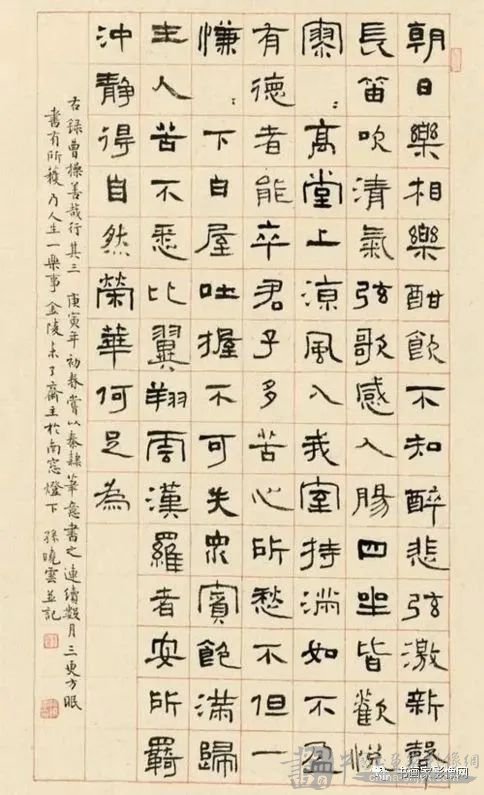 朝日樂相樂酣飲不知醉悲弦激新聲
長笛吹清氣弦歌感人腸四坐皆歡悅
寥：高堂上涼風入我室持滿如不盈
有德者能卒君子多苦心所愁不但一
慊：下白屋吐握不可失眾賓飽滿歸
主人苦不悉比翼翔雲漢羅者安所羈
沖靜得自然榮華何足為
右錄曹操善哉行其三 庚寅年初春嘗以秦隸筆意書之連續數月三更方眠
書有所獲乃人生一樂事金陵未了齋主於南窓燈下 孫曉雲並記
书画家影像网